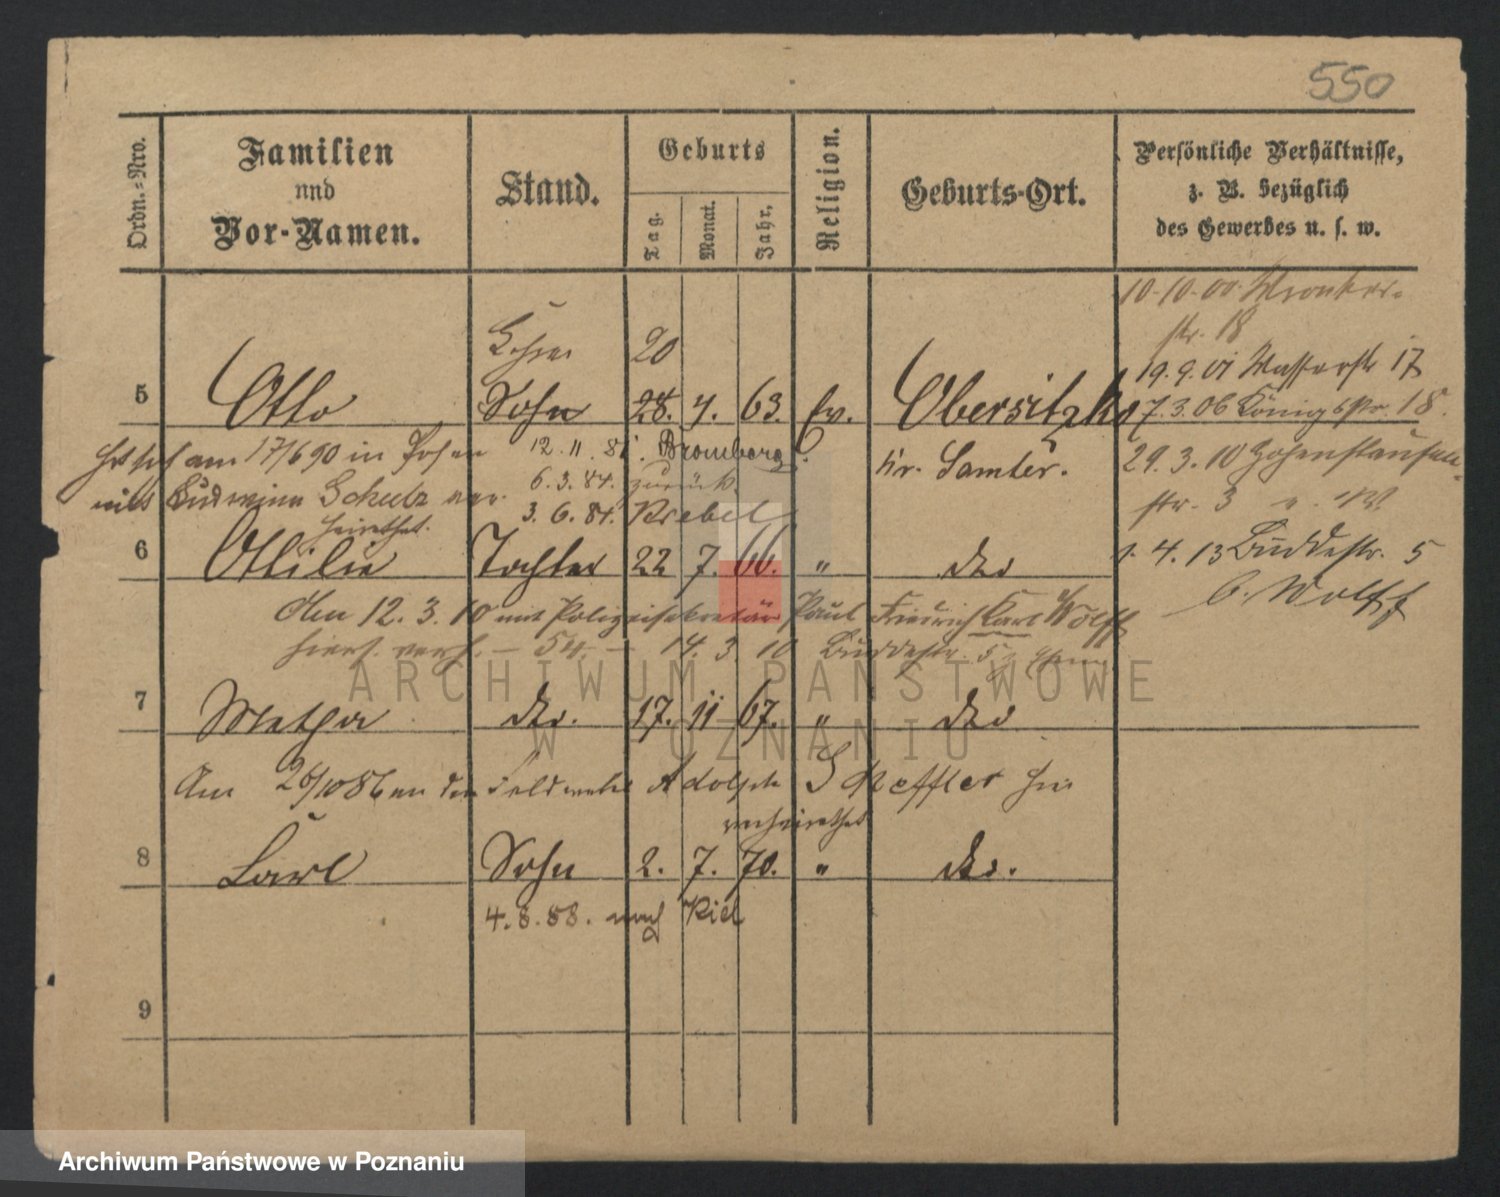 550
Ordn.-Nro.
Familien
und
Vor-Namen.
Stand.
Geburts
Tag.
Monat.
Jahr.
Religion.
Geburts-Ort.
Persönliche Verhältnisse,
z. B. bezüglich
des Gewerbes u. s. w.
10.10.00 Wronker-
str. 18
19.9.01 Wasserstr 17
7.3.06 Königstr. 18.
29.3.10 Hohenstaufen-
str. 3
1.4.13 Buddestr. 5
b. Wolff
20
5 Otto Sohn 28. 7. 63. Ev. Obersitzko
Kr. Samter.
12.11.81. Bromberg
6.3.84. zurück.
3.6.84. Kiebel
Hat sich am 17/6 90 in Posen
mit Ludwina Schulz ver-
heirathet.
6 Ottilie Tochter 22 7. 66. " dto
Am 12.3.10 mit Polizeisekretär Paul Friedrich Karl Wolff
hiers. verh. 14.3.10 Buddestr. 5
7 Metha dto. 17. 11 67. " dto
Am 26/10 86 an den Feldwebel Adolph Scheffler hier
verheirathet
8 Carl Sohn 2. 7. 70. " dto.
4.8.88. nach Kiel
9
ARCHIWUM PAŃSTWOWE
W POZNANIU
Archiwum Państwowe w Poznaniu